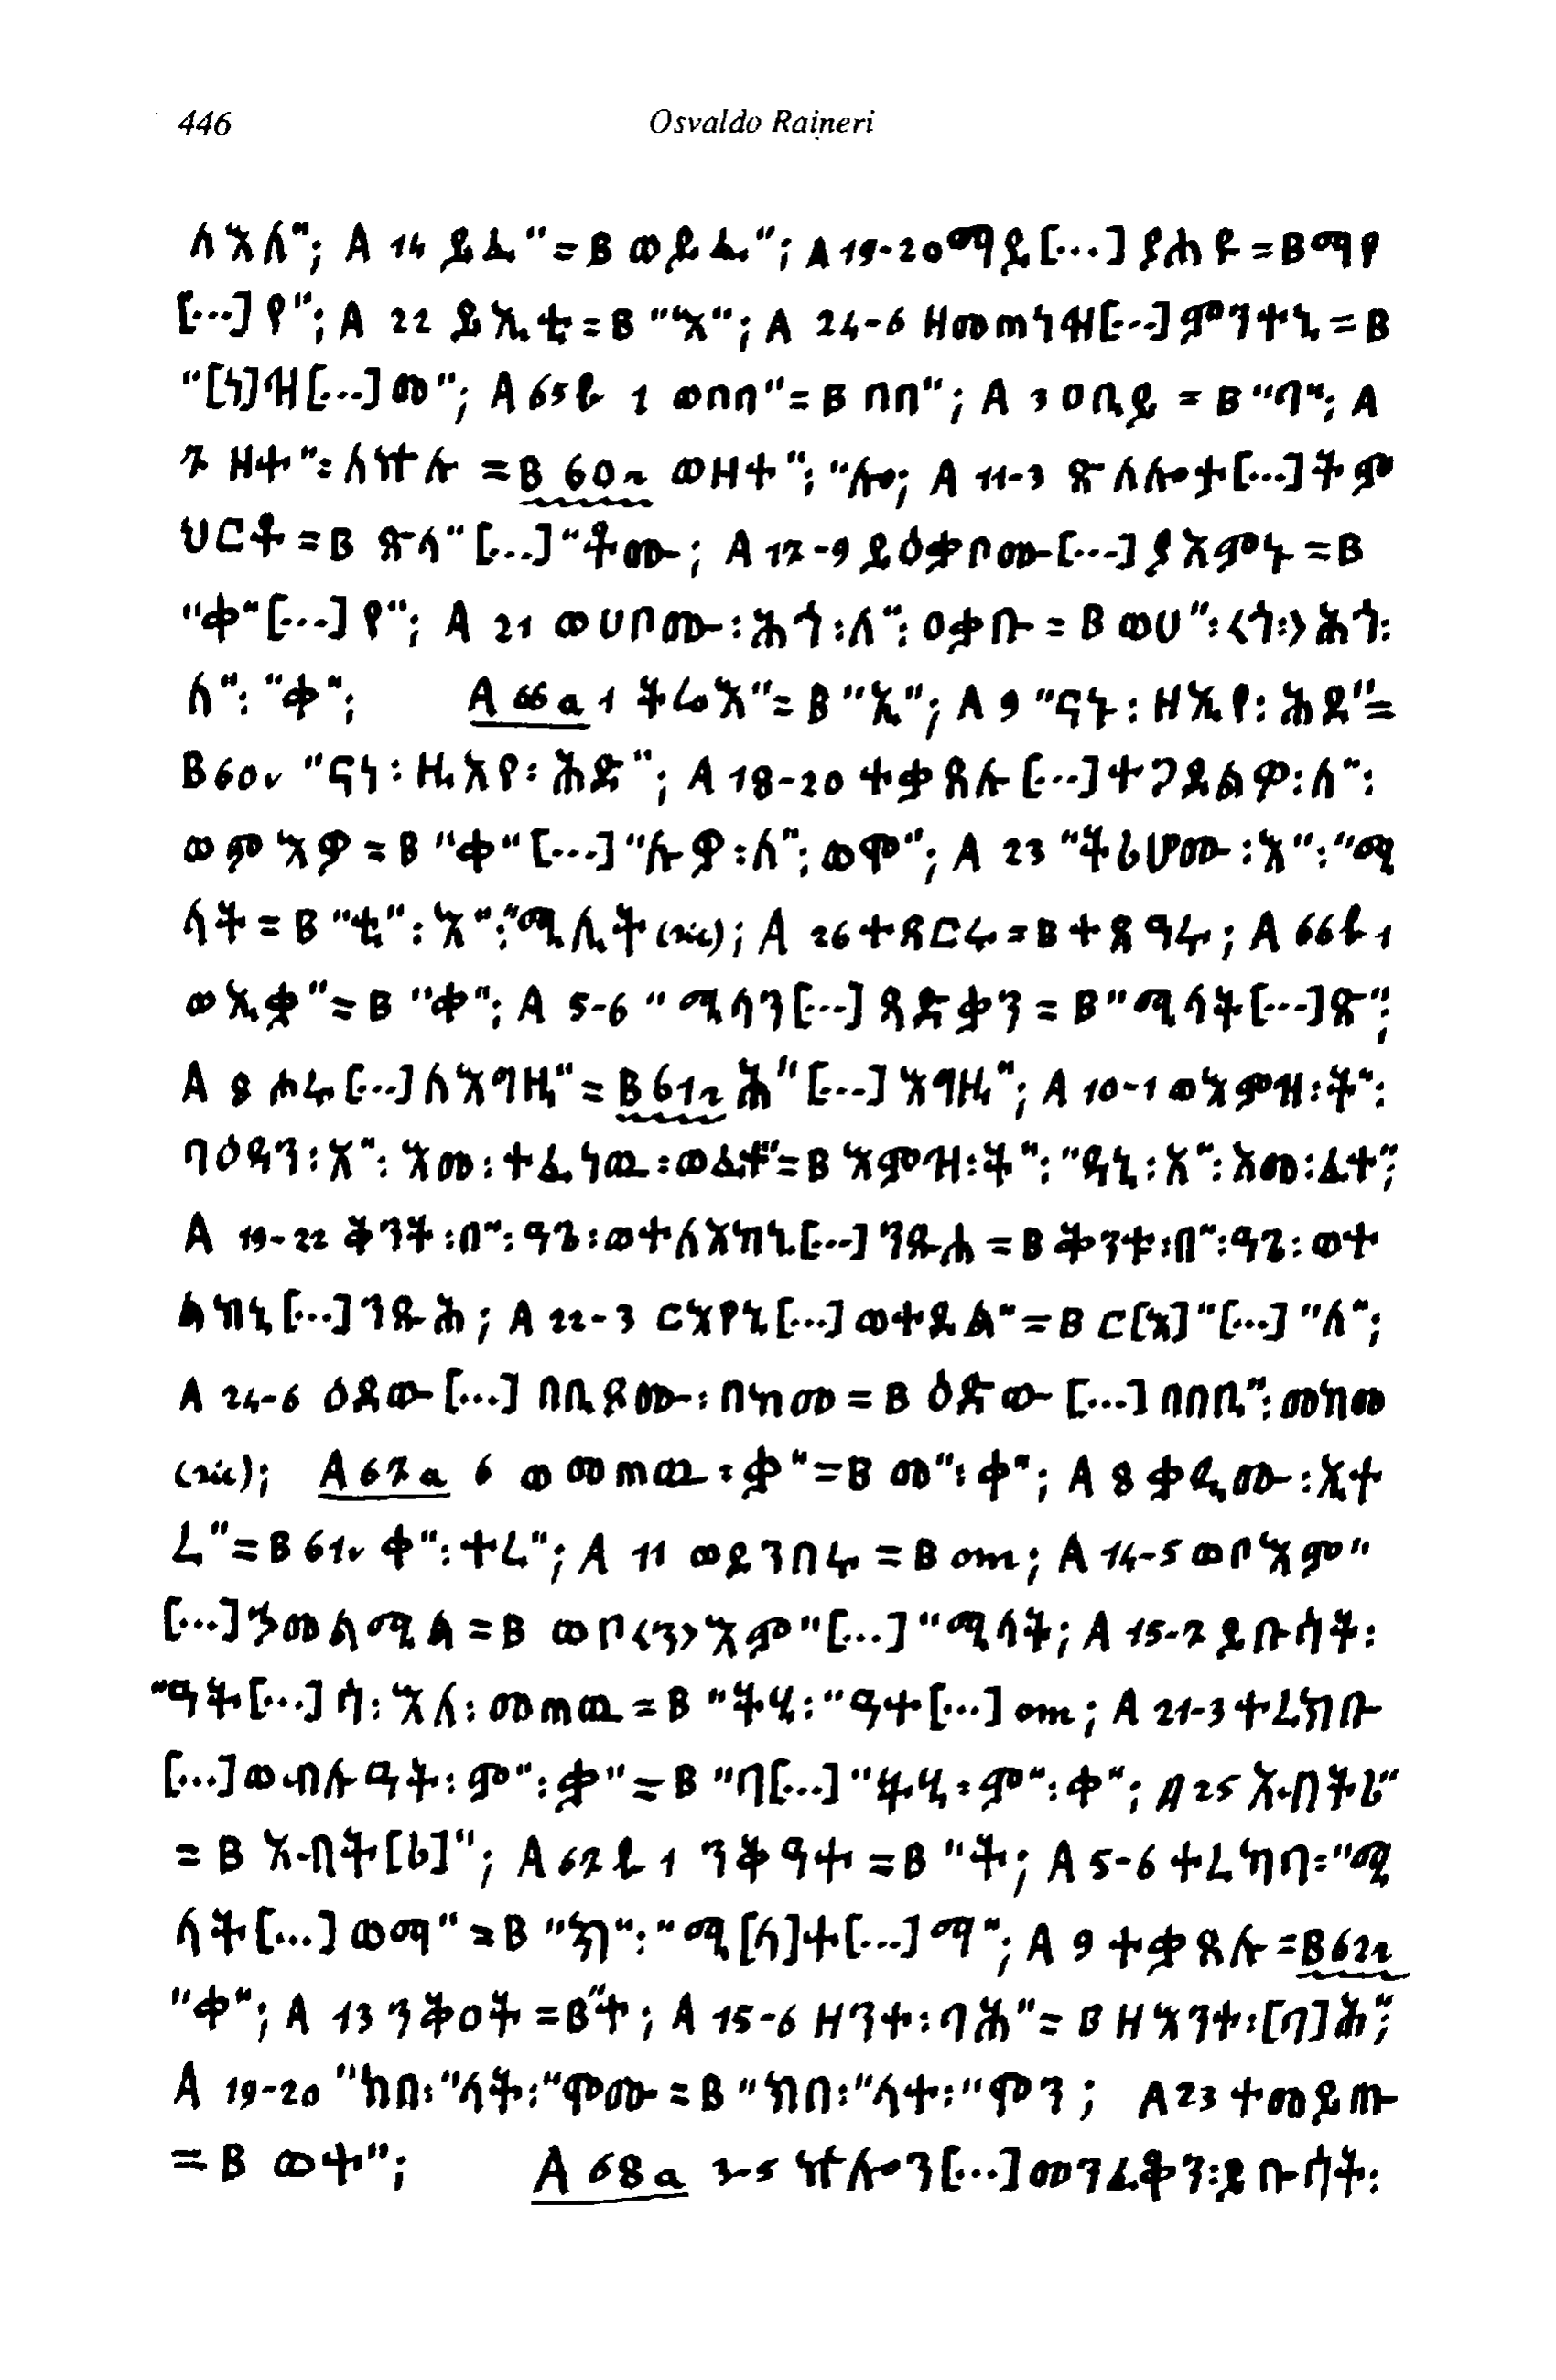 446 Osvaldo Raineri
ለእለ"; A 14 ይፈ"=B ወይፈ"; A 19-20 ማይ[...] ያሐዩ =B ማየ
[...] የ"; A 22 ይኢቲ=B "እ"; A 24-6 ዘመጠነዝ[...] ምንተኒ = B
"[ነ]ዝ[...]መ"; A 65b 1 ወበበ"= B በበ"; A 3 ዐቢይ = B "ባ"; A
7 ዘተ"፡ለኵሉ =B 60r ወዘተ"፡ "ሎ; A 11-3 ጽለሎተ[...]ትም
ህርት =B ጽላ"[...]"ትሙ; A 17-9 ይዕቀቦሙ[...] ያአምኑ =B
"ቀ"[...] የ"; A 21 ወሀቦሙ፡ሕጎ፡ለ"፡ ዐቃቡ = B ወሀ"፡<ጎ፡>ሕጎ፡
ለ"፡ "ቀ"; A 66a 1 ትሬእ"= B "ኢ"; A 9 "ናኑ፡ ዘኢየ፡ ሕደ"=
B 60v "ናነ፡ ዚአየ፡ ሕድ"; A 18-20 ተቃጸሉ [...]ተጋደልዎ፡ለ"፡
ወምእዎ = B "ቀ" [...]"ሉዎ፡ለ"፡ ወሞ"; A 23 "ትሬህሙ፡እ"፡"ማ
ላት = B "ቲ"፡ እ"፡"ማሊት (sic); A 26 ተጸርፉ=B ተጸዓሩ; A 66b 1
ወኢቃ"= B "ቀ"; A 5-6 "ሜላን[...] ጻድቃን = B "ሜላት[...]ጽ";
A 8 ሐራ [...]ለእግዚ"= B 61r ሕ"[...] እግዚ"; A 10-1 ወእምዝ፡ት"፡
ባዕዳን፡አ"፡ እመ፡ተፈነወ፡ወፈት"= B እምዝ፡ት"፡ "ዳኒ፡አ"፡ አመ፡ፈተ";
A 19-22 ቅንት፡በ"፡ዓኜ፡ወተለአከኒ[...] ንዱሕ = B ቅንት፡በ"፡ዓኜ፡ ወተ
ልከኒ [...]ንዱሕ; A 22-3 ርእየኒ[...] ወተደል"= B ር[እ]"[...] "ለ";
A 24-6 ዕደው[...] በቢጾሙ፡በከመ = B ዕድው [...] በበቢ"፡ መከመ
(sic); A 67a 6 ወመጠወ፡ቃ"=B መ"፡ቀ"; A 8 ቃሊሙ፡ኢተ
ረ"= B 61v ቀ"፡ ተረ"; A 11 ወይንበሩ = B om; A 14-5 ወቦእም"
[...]ኀመልማል = B ወቦ<ን>እም"[...]"ሜላት; A 15-7 ይቡሳት፡
"ዓት[...] ሳ፡ እለ፡ መጠወ = B "ትሂ፡ "ዓተ[...] om; A 21-3 ተረክቡ
[...]ወብሉዓት፡ ም"፡ቃ"= B "ባ[...]"ቲሂ፡ም"፡ቀ"; A 25 አብትሪ"
= B አብት[ሪ]"; A 67b 1 ንቅዓተ =B "ት; A 5-6 ተረከባ፡"ማ
ላት[...] ወማ"= B "ኵ"፡ "ሜ[ለ]ተ[...] ማ"; A 9 ተቃጸሉ =B 62r
"ቀ"; A 13 ንቅዐት =B "ተ; A 15-6 ዘንተ፡ባሕ"= B ዘእንተ፡[ባ]ሕ";
A 19-20 "ከበ፡"ላት፡"ምሙ = B "ከበ፡"ላተ፡"ምን; A 23 ተመይጡ
= B ወተ"; A 68a 3-5 ኵሎን[...] መንፈቅን፡ይቡሳት፡